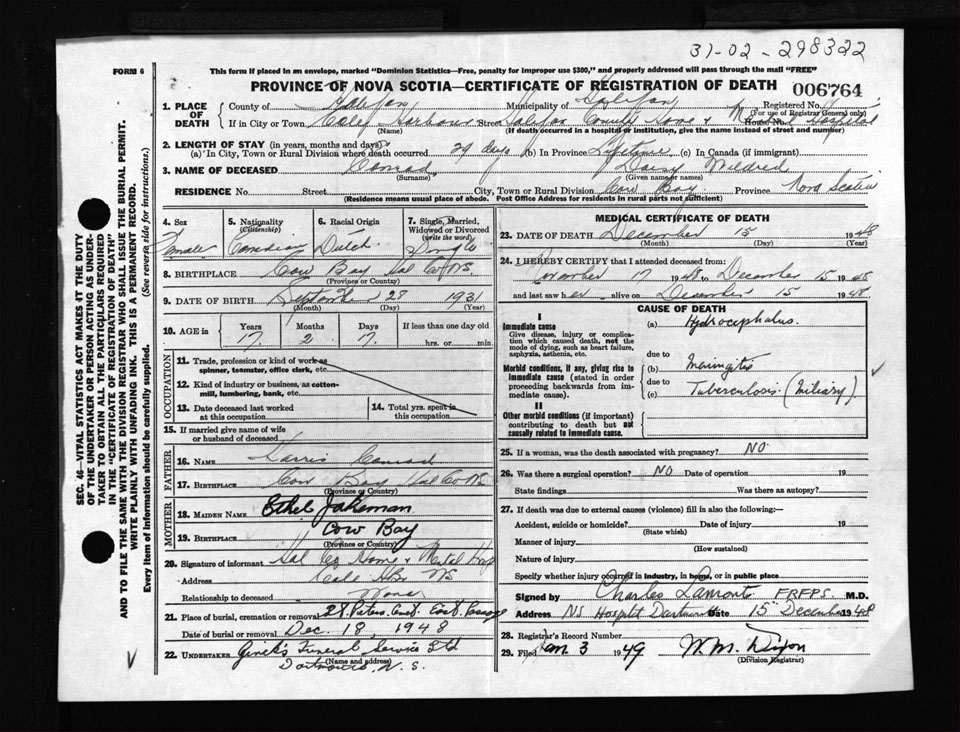 31-02-298322
FORM 6
This form if placed in an envelope, marked "Dominion Statistics—Free, penalty for improper use $300," and properly addressed will pass through the mail "FREE"
PROVINCE OF NOVA SCOTIA—CERTIFICATE OF REGISTRATION OF DEATH 006764
1. PLACE OF DEATH
County of Halifax Municipality of Halifax Registered No.
(For use of Registrar General only)
If in City or Town Cole Harbour Street Halifax County Home + Mental Hospital House No.
(Name) (If death occurred in a hospital or institution, give the name instead of street and number)
2. LENGTH OF STAY (in years, months and days)
(a) In City, Town or Rural Division where death occurred 29 days (b) In Province Lifetime (c) In Canada (if immigrant)
3. NAME OF DECEASED Conrad Daisy Mildred
(Surname) (Given name or names)
RESIDENCE No. Street City, Town or Rural Division Cow Bay Province Nova Scotia
(Residence means usual place of abode. Post Office Address for residents in rural parts not sufficient)
SEC. 46—VITAL STATISTICS ACT MAKES IT THE DUTY
OF THE UNDERTAKER OR PERSON ACTING AS UNDER-
TAKER TO OBTAIN ALL THE PARTICULARS REQUIRED
IN THE "CERTIFICATE OF REGISTRATION OF DEATH"
AND TO FILE THE SAME WITH THE DIVISION REGISTRAR WHO SHALL ISSUE THE BURIAL PERMIT.
WRITE PLAINLY WITH UNFADING INK. THIS IS A PERMANENT RECORD.
Every item of Information should be carefully supplied. (See reverse side for instructions.)
4. Sex 5. Nationality 6. Racial Origin 7. Single, Married,
(Citizenship) Widowed or Divorced
(write the word)
Female Canadian Dutch Single
8. BIRTHPLACE Cow Bay Hal Co NS
(Province or Country)
9. DATE OF BIRTH September 28 1931
(Month) (Day) (Year)
10. AGE in Years Months Days If less than one day old
17 2 17 hrs. or min.
OCCUPATION
11. Trade, profession or kind of work as
spinner, teamster, office clerk, etc.
12. Kind of industry or business, as cotton-
mill, lumbering, bank, etc.
13. Date deceased last worked
at this occupation
14. Total yrs. spent in
this occupation
15. If married give name of wife
or husband of deceased
FATHER
16. NAME Harris Conrad
17. BIRTHPLACE Cow Bay Hal Co NS
(Province or Country)
MOTHER
18. MAIDEN NAME Ethel Jakeman
19. BIRTHPLACE Cow Bay
(Province or Country)
20. Signature of informant Hal Co Home + Mental Hosp
Address Cole Hbr NS
Relationship to deceased None
21. Place of burial, cremation or removal St. Peters East Passage
Date of burial or removal Dec. 18, 1948
22. UNDERTAKER Funeral Service Ltd
(Name and address)
Dartmouth, N. S.
MEDICAL CERTIFICATE OF DEATH
23. DATE OF DEATH December 15 1948
(Month) (Day) (Year)
24. I HEREBY CERTIFY that I attended deceased from:
November 17 1948 to December 15 1948
and last saw her alive on December 15 1948
CAUSE OF DEATH
I
Immediate cause
Give disease, injury or complica-
tion which caused death, not the
mode of dying, such as heart failure,
asphyxia, asthenia, etc.
(a) Hydrocephalus.
due to
Morbid conditions, if any, giving rise to
immediate cause (stated in order
proceeding backwards from im-
mediate cause).
(b) Meningitis
due to
(c) Tuberculosis (Miliary)
II
Other morbid conditions (if important)
contributing to death but not
causally related to immediate cause.
25. If a woman, was the death associated with pregnancy? NO
26. Was there a surgical operation? NO Date of operation 19
State findings Was there an autopsy?
27. If death was due to external causes (violence) fill in also the following:—
Accident, suicide or homicide? Date of injury 19
(State which)
Manner of injury
(How sustained)
Nature of injury
Specify whether injury occurred in industry, in home, or in public place
Signed by Charles Lamont FRFPS M.D.
Address NS Hospital Dartmouth Date 15 December 1948
28. Registrar's Record Number
29. Filed Jan 3 1949 W. M. Dixon
(Division Registrar)